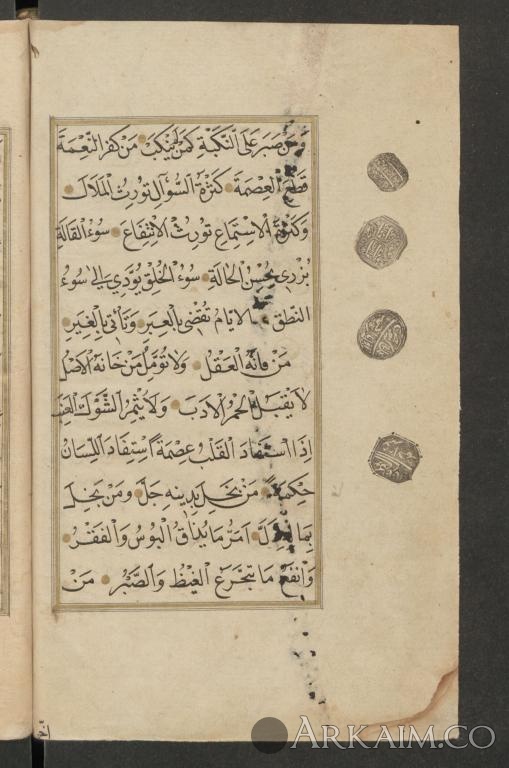 وَمَنْ صَبَرَ عَلَى النَّكْبَةِ كَمَنْ لَمْ يُنْكَبْ مَنْ كَفَرَ النِّعْمَةَ
قَطَعَ الْعِصْمَةَ كَثْرَةُ السُّؤَالِ تُورِثُ الْمَلَالَ
وَكَثْرَةُ الْاِسْتِمَاعِ تُورِثُ الْاِنْتِفَاعَ سُوءُ الْقَالَةِ
يُزْرِى بِحُسْنِ الْحَالَةِ سُوءُ الْخُلُقِ يُؤَدِّي إِلَى سُوءِ
النُّطْقِ الْاَيَّامُ تُفْضِى بِالْعِبَرِ وَتَأْتِى بِالْغِيَرِ
مَنْ فَاتَهُ الْعَقْلُ وَلَا تُؤَمِّلْ مَنْ خَانَهُ الْاَصْلُ
لَا يَقْبَلُ الْحُمُرُ الْاَدَبَ وَلَا يُثْمِرُ الشَّوْكُ الْعِنَبَ
اِذَا اسْتَفَادَ الْقَلْبُ عِصْمَةً اسْتَفَادَ اللِّسَانُ
حِكْمَةً مَنْ بَخِلَ بِدِينِهِ جَلَّ وَمَنْ بَخِلَ
اَمَرُّ مَا يُذَاقُ الْبُوسُ وَالْفَقْرُ
وَاَنْفَعُ مَا يُتَجَرَّعُ الْغَيْظُ وَالصَّبْرُ مَنْ
ARKAIM.CO